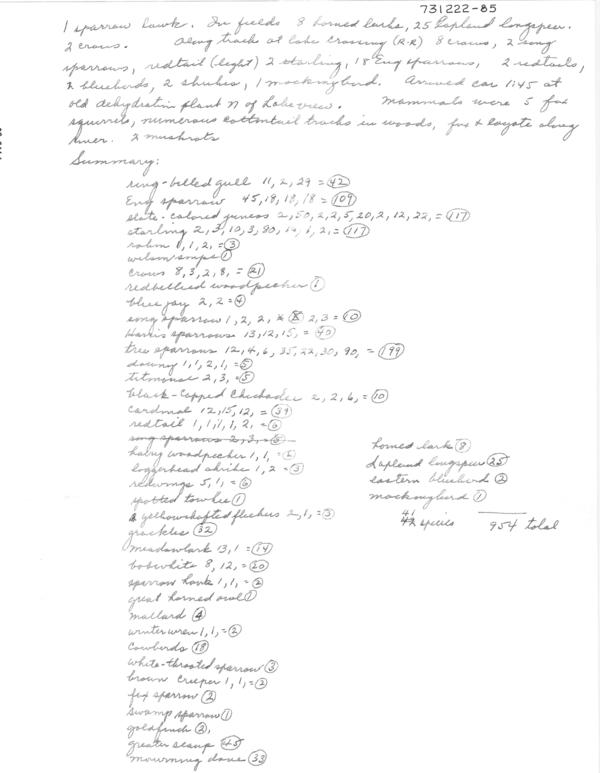 731222-85
1 sparrow hawk. In fields 8 horned larks, 25 Lapland longspur.
2 crows. Along track at lake crossing (R-R) 8 crows, 2 song
sparrows, redtail (light) 2 starling, 18 Eng sparrows, 2 redtails,
2 bluebirds, 2 shrikes, 1 mockingbird. Arrived car 1:45 at
old dehydration plant N of Lakeview. Mammals were 5 fox
squirrels, numerous cottontail tracks in woods, fox & coyote along
river. 2 muskrats
Summary:
ring-billed gull 11, 2, 29 = 42
Eng sparrow 45, 19, 18, 18 = 109
slate-colored juncos 2, 50, 2, 2, 5, 20, 2, 12, 22, = 117
starling 2, 3, 10, 3, 80, 2, = 117
robin 1, 2, = 3
wilson snipe 1
crows 8, 3, 2, 8, = 21
redbellied woodpecker 1
blue jay 2, 2 = 4
song sparrow 1, 2, 2, 8 2, 3 = 10
Harris sparrows 13, 12, 15, = 40
tree sparrows 12, 4, 6, 35, 22, 30, 90, = 199
downy 1, 1, 2, 1, = 5
titmouse 2, 3, = 5
black-capped Chickadee 2, 2, 6, = 10
cardinal 12, 15, 12, = 39
redtail 1, 1, 1, 1, 2, = 6
song sparrows 2, 3, = 5
hairy woodpecker 1, 1, =
loggerhead shrike 1, 2 = 3
redwings 5, 1, = 6
spotted towhee 1
yellowshafted flickers 2, 1, = 3
grackles 32
meadowlark 13, 1 = 14
bobwhite 8, 12, = 20
sparrow hawk 1, 1, = 2
great horned owl 1
mallard 4
winter wren 1, 1, = 2
Cowbirds 18
white-throated sparrow 3
brown Creeper 1, 1, = 2
fox sparrow 2
swamp sparrow 1
goldfinch 2,
greater scaup 45
mourning dove 33
horned lark 8
Lapland longspur 25
eastern bluebird 2
mockingbird 1
41
42 species 954 total